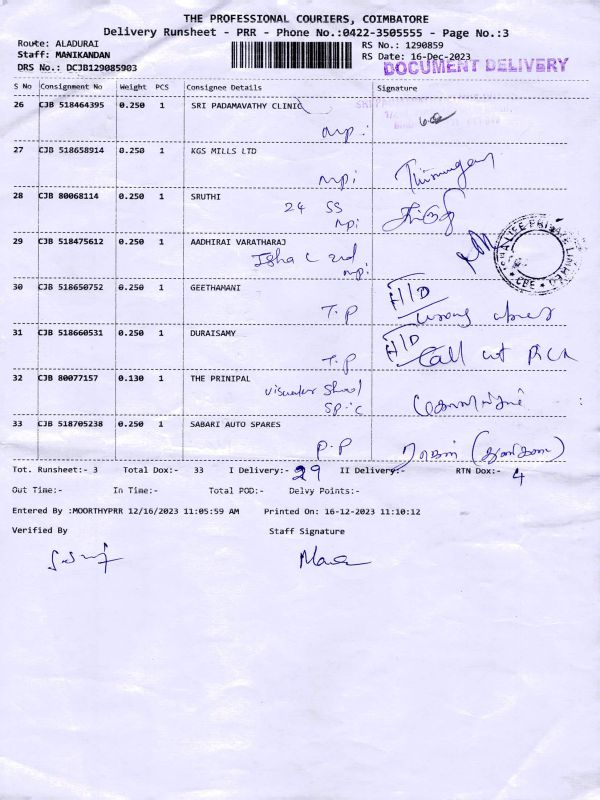 THE PROFESSIONAL COURIERS, COIMBATORE
Delivery Runsheet - PRR - Phone No.:0422-3505555 - Page No.:3
Route: ALADURAI
Staff: MANIKANDAN
DRS No.: DCJB129085903
RS No.: 1290859
RS Date: 16-Dec-2023
DOCUMENT DELIVERY
S No Consignment No Weight PCS Consignee Details Signature
26 CJB 518464395 0.250 1 SRI PADAMAVATHY CLINIC
27 CJB 518658914 0.250 1 KGS MILLS LTD
28 CJB 80068114 0.250 1 SRUTHI
24 SS
29 CJB 518475612 0.250 1 AADHIRAI VARATHARAJ
30 CJB 518650752 0.250 1 GEETHAMANI
T.P H/D
31 CJB 518660531 0.250 1 DURAISAMY
T.P H/D Call
32 CJB 80077157 0.130 1 THE PRINIPAL
33 CJB 518705238 0.250 1 SABARI AUTO SPARES
P.P
Tot. Runsheet:- 3 Total Dox:- 33 I Delivery:- 29 II Delivery:- RTN Dox:- 4
Out Time:- In Time:- Total POD:- Delvy Points:-
Entered By :MOORTHYPRR 12/16/2023 11:05:59 AM Printed On: 16-12-2023 11:10:12
Verified By Staff Signature